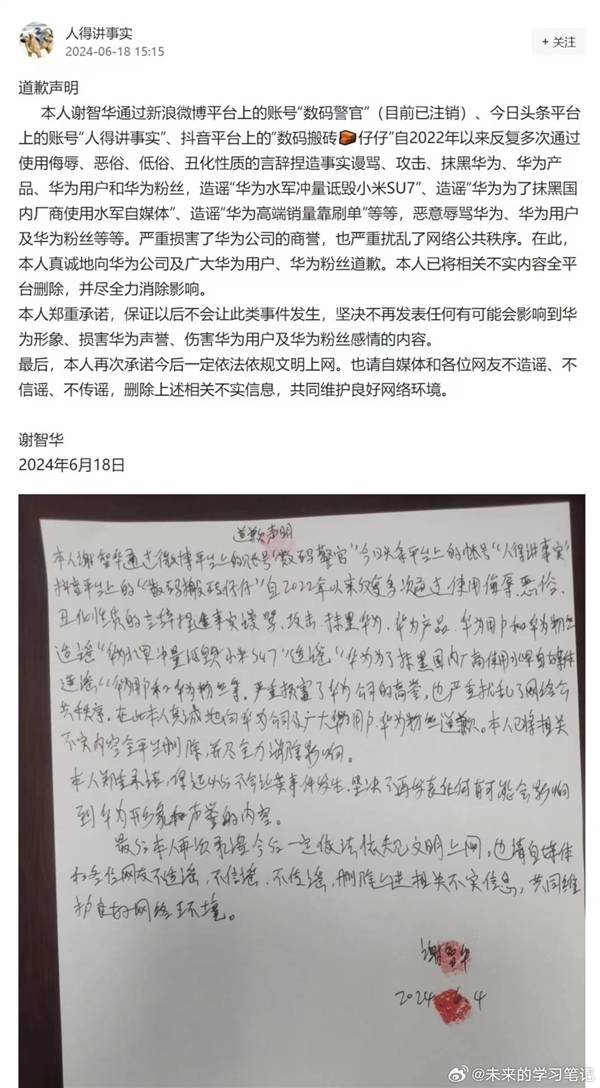 人得讲事实
2024-06-18 15:15
+ 关注
道歉声明
本人谢智华通过新浪微博平台上的账号“数码警官”（目前已注销）、今日头条平台
上的账号“人得讲事实”、抖音平台上的“数码搬砖🧱仔仔”自2022年以来反复多次通过
使用侮辱、恶俗、低俗、丑化性质的言辞捏造事实谩骂、攻击、抹黑华为、华为产
品、华为用户和华为粉丝，造谣“华为水军冲量诋毁小米SU7”、造谣“华为为了抹黑国
内厂商使用水军自媒体”、造谣“华为高端销量靠刷单”等等，恶意辱骂华为、华为用户
及华为粉丝等等。严重损害了华为公司的商誉，也严重扰乱了网络公共秩序。在此，
本人真诚地向华为公司及广大华为用户、华为粉丝道歉。本人已将相关不实内容全平
台删除，并尽全力消除影响。
本人郑重承诺，保证以后不会让此类事件发生，坚决不再发表任何有可能会影响到华
为形象、损害华为声誉、伤害华为用户及华为粉丝感情的内容。
最后，本人再次承诺今后一定依法依规文明上网。也请自媒体和各位网友不造谣、不
信谣、不传谣，删除上述相关不实信息，共同维护良好网络环境。
谢智华
2024年6月18日
道歉声明
本人谢智华通过微博平台上的账号“数码警官”今日头条平台上的帐号“人得讲事实”
抖音平台上的“数码搬砖仔仔”自2022年以来反复多次通过使用侮辱恶俗、
丑化性质的言辞捏造事实谩骂、攻击、抹黑华为、华为产品、华为用户和华为粉丝
造谣“华为水军冲量诋毁小米SU7”造谣“华为为了抹黑国内厂商使用水军自媒体
造谣“华为用户和华为粉丝等。严重损害了华为公司的商誉，也严重扰乱了网络公
共秩序。在此本人真诚地向华为公司及广大华为用户、华为粉丝道歉。本人已将相关
不实内容全平台删除，并尽全力消除影响。
本人郑重承诺，保证以后不会让类事件发生，坚决不再发表任何有可能会影响
到华为形象和声誉的内容。
最后本人再次承诺今后一定依法依规文明上网。也请自媒体
和各位网友不造谣，不信谣、不传谣，删除上述相关不实信息，共同维
护良好网络环境。
谢智华
2024 6.4
@未来的学习笔记